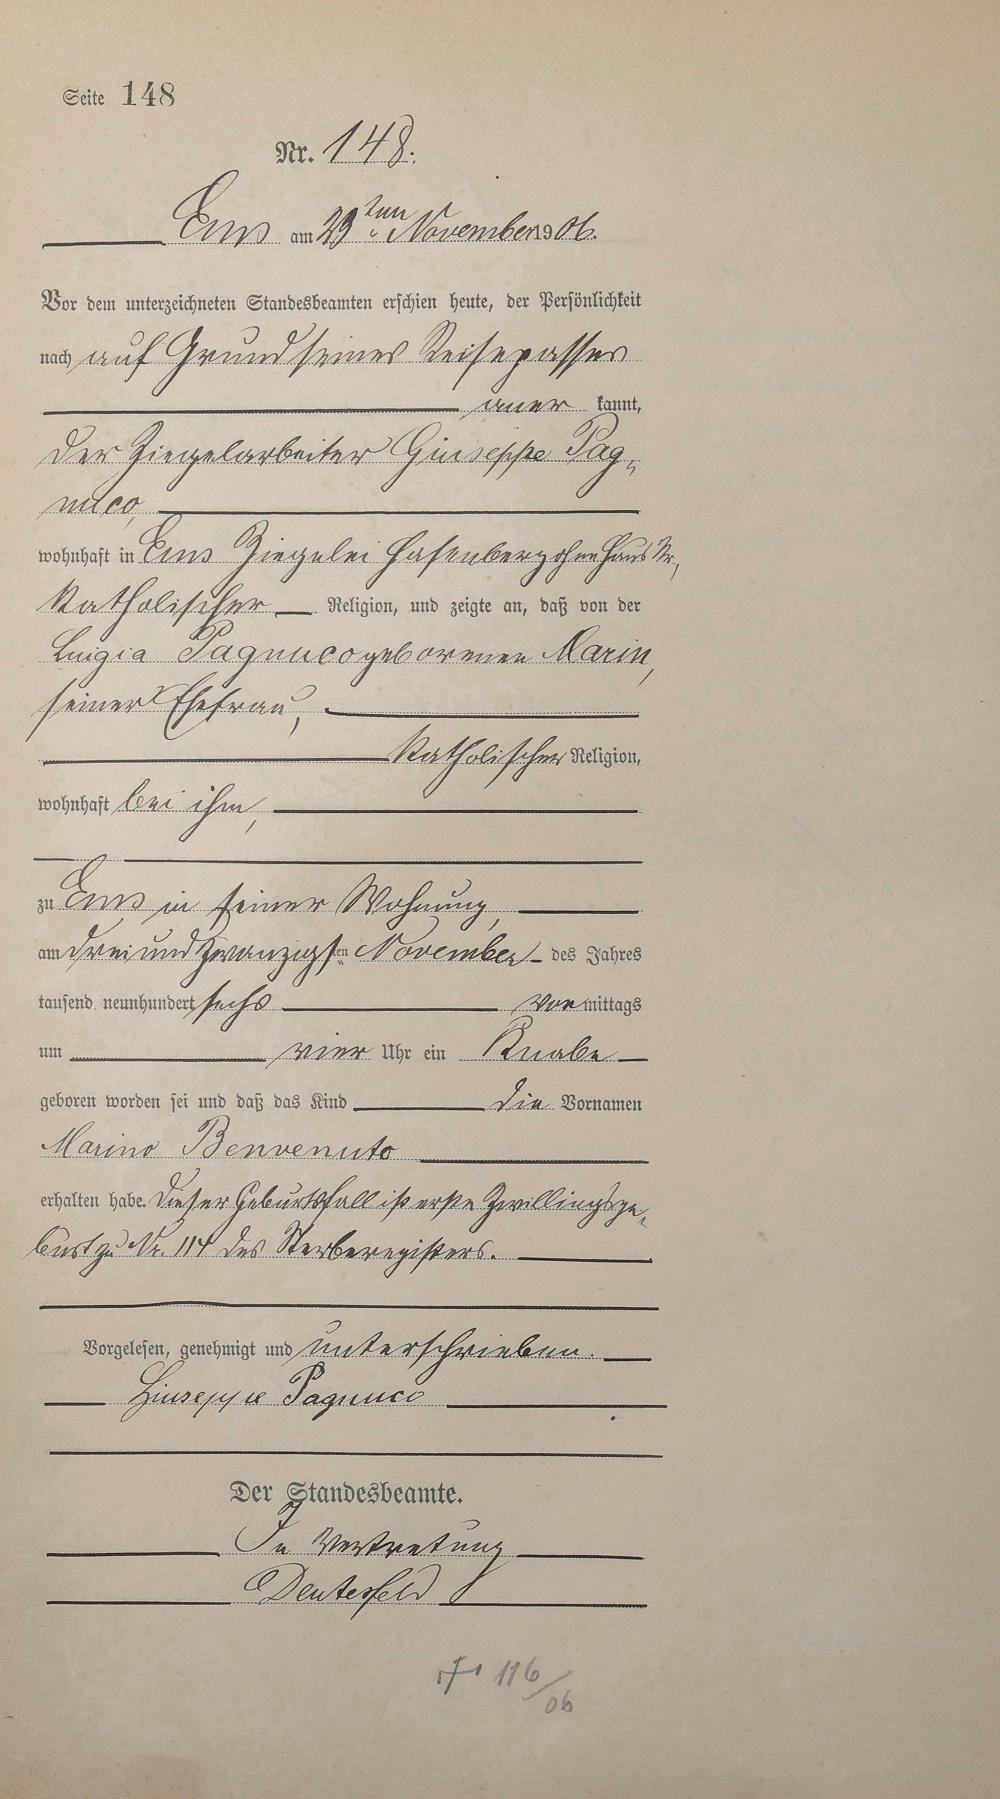 Seite 148
Nr. 148.
Ems am 23ten November 1906.
Vor dem unterzeichneten Standesbeamten erschien heute, der Persönlichkeit
nach auf Grund seines Reisepasses
aner kannt,
der Ziegelarbeiter Giuseppe Pag-
nuco,
wohnhaft in Ems Ziegelei Hasenberg ohne Haus Nr,
katholischer Religion, und zeigte an, daß von der
Luigia Pagnuco geborenen Marin,
seiner Ehefrau,
katholischer Religion,
wohnhaft bei ihm,
zu Ems in seiner Wohnung,
am dreiundzwanzigsten November des Jahres
tausend neunhundert sechs vor mittags
um vier Uhr ein Knabe
geboren worden sei und daß das Kind die Vornamen
Marino Benvenuto
erhalten habe. Dieser Geburtsfall ist erste Zwillingsge-
burt zu Nr. 114 des Sterberegisters.
Vorgelesen, genehmigt und unterschrieben.
Giuseppe Pagnuco
Der Standesbeamte.
In Vertretung
Deutesfeld
† 116/06